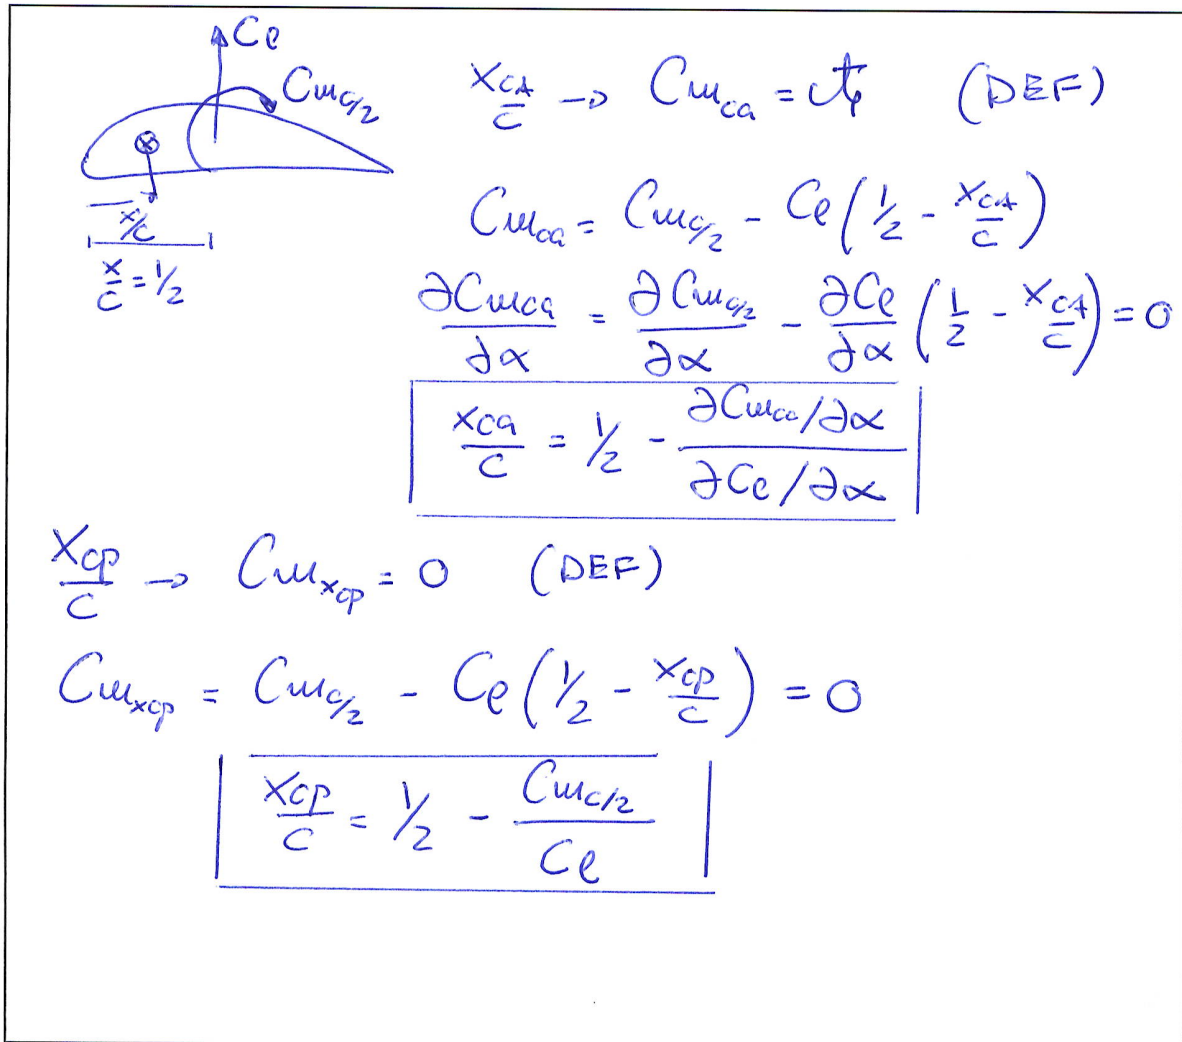 Cl
Cm_{c/2}
x/c
x/c = 1/2
x_{CA}/c → Cm_{ca} = cte (DEF)
Cm_{ca} = Cm_{c/2} - Cl(1/2 - x_{CA}/c)
∂Cm_{ca}/∂α = ∂Cm_{c/2}/∂α - ∂Cl/∂α (1/2 - x_{CA}/c) = 0
x_{ca}/c = 1/2 - (∂Cm_{ca}/∂α)/(∂Cl/∂α)
x_{cp}/c → Cm_{xcp} = 0 (DEF)
Cm_{xcp} = Cm_{c/2} - Cl(1/2 - x_{cp}/c) = 0
x_{cp}/c = 1/2 - Cm_{c/2}/Cl